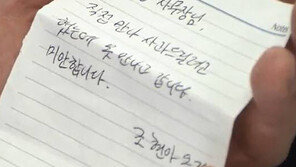 사무장님,
직접 만나 사과드리려고
했는데 못 만나고 갑니다.
미안합니다.
조현아 올림
Notes